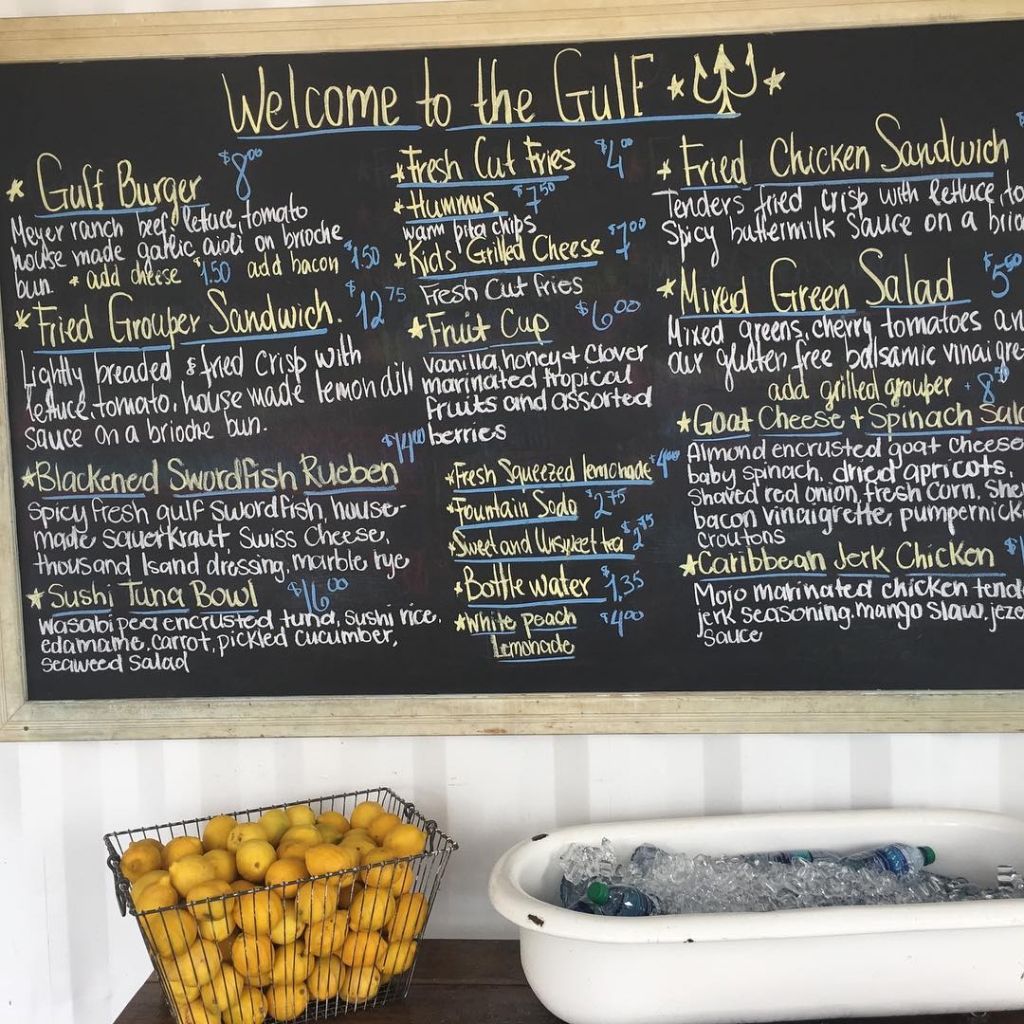 Welcome to the Gulf
Gulf Burger $8.00
Meyer ranch beef, lettuce, tomato
house made garlic aioli on brioche
bun. * add cheese $1.50 add bacon $1.50
Fried Grouper Sandwich. $12.75
Lightly breaded & fried crisp with
lettuce, tomato, house made lemon dill
sauce on a brioche bun.
Blackened Swordfish Rueben $14.00
Spicy fresh gulf swordfish, house-
made sauerkraut, Swiss Cheese,
thousand Isand dressing, marble rye
Sushi Tuna Bowl $16.00
wasabi pea encrusted tuna, sushi rice,
edamame, carrot, pickled cucumber,
seaweed salad
Fresh Cut Fries $4.00
Hummus $7.50
warm pita chips
Kids' Grilled Cheese $7.00
Fresh Cut Fries
Fruit Cup $6.00
vanilla, honey + clover
marinated tropical
fruits and assorted
berries
Fresh Squeezed lemonade $4.00
Fountain Soda $2.75
Sweet and Unsweet tea $2.75
Bottle water $1.35
White peach $4.00
Lemonade
Fried Chicken Sandwich $
Tenders fried crisp with lettuce, to
Spicy buttermilk Sauce on a brio
Mixed Green Salad $5.50
Mixed greens, cherry tomatoes an
aux gluten free balsamic vinaigre
add grilled grouper + 8
Goat Cheese + Spinach Sala
Almond encrusted goat cheese
baby spinach, dried apricots,
Shaved red onion, fresh corn, She
bacon vinaigrette, pumpernick
croutons
Caribbean Jerk Chicken $1
Mojo marinated chicken tend
jerk seasoning, mango slaw, jeze
sauce